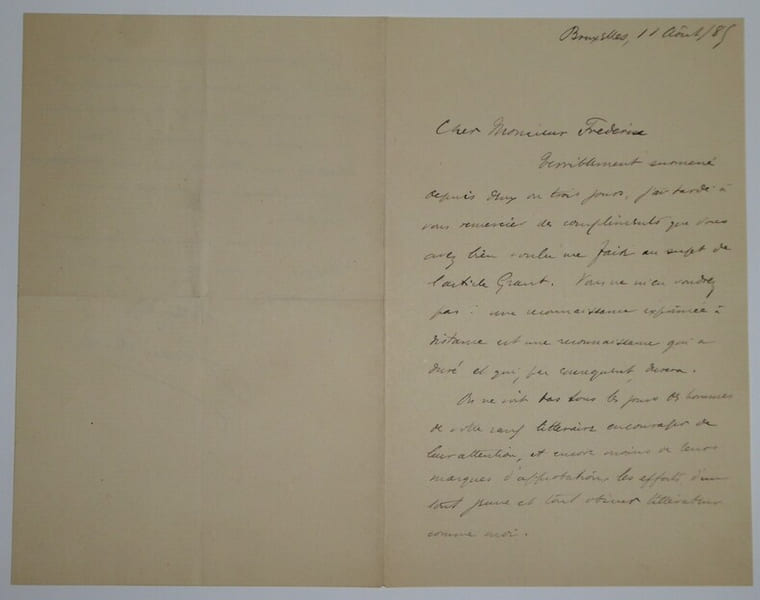 Bruxelles, 11 Août/85
Cher Monsieur Frédérix
Terriblement surmené
depuis deux ou trois jours, j'ai tardé à
vous remercier des compliments que vous
avez bien voulu me faire au sujet de
l'article Grant. Vous ne m'en voudrez
pas : une reconnaissance exprimée à
distance est une reconnaissance qui a
duré et qui, par conséquent, durera.
On ne voit pas tous les jours des hommes
de votre rang littéraire encourager de
leur attention, et encore moins de leurs
marques d'approbation, les efforts d'un
tout jeune et tout obscur littérateur
comme moi.